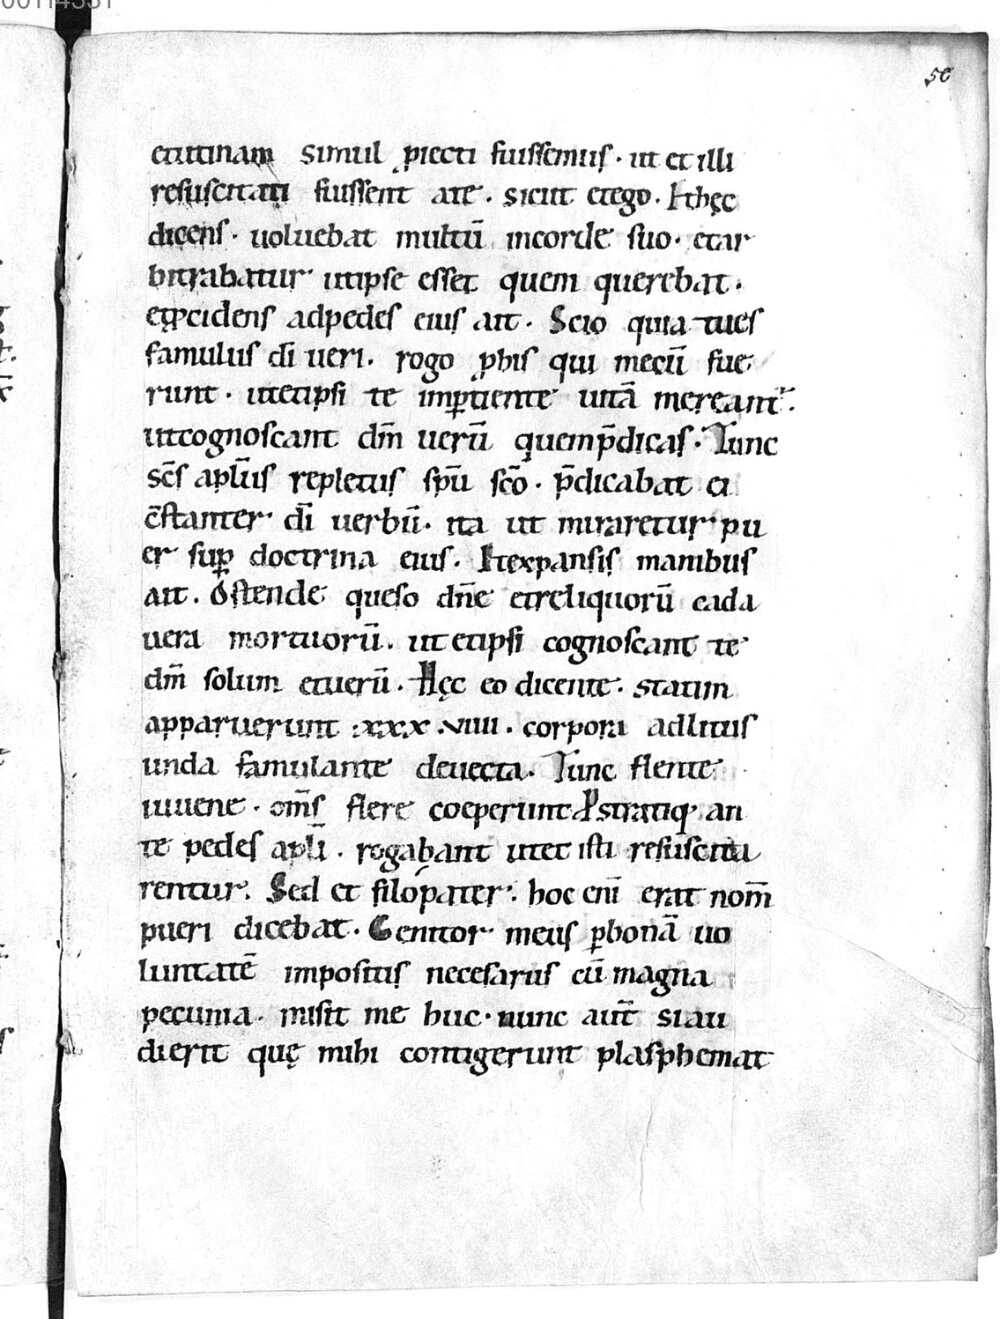 50
etutinam simul piecti fuissemus · ut et illi
resuscitati fuissent ate · sicut etego · Ethęc
dicens · uoluebat multū incorde suo · etar
bitrabatur utipse esset quem querebat ·
et p̱cidens adpedes eius ait · Scio quia tues
famulus dī ueri · rogo phis qui mecū fue
runt · utetipsi te imp̱tiente uitā mereant᷑ ·
utcognoscant dm̄ uerū quemp̄dicas · Tunc
sc̄s aplūs repletus spū sc̄o · p̄dicabat ei
c̄stanter dī uerbū · ita ut miraretur pu
er sup̱ doctrina eius · Etexpansis manibus
ait · Ostende queso dn̄e etreliquorū cada
uera mortuorū · ut etipsi cognoscant te
dm̄ solum etuerū · Hęc eo dicente · statim
apparuerunt · xxx · viiii · corpora adlitus
unda famulante deuecta · Tunc flente
iuuene · om̄s flere coeperunt · Pstratiq; an
te pedes aplī · rogabant utet isti resuscita
rentur · Sed et filopater · hoc enī erat nom̄
pueri dicebat · Genitor meus p̱bonā uo
luntatē impositis necesariis cū magna
pecunia · misit me huc · nunc aut̄ siau
dierit quę mihi contigerunt plasphemat